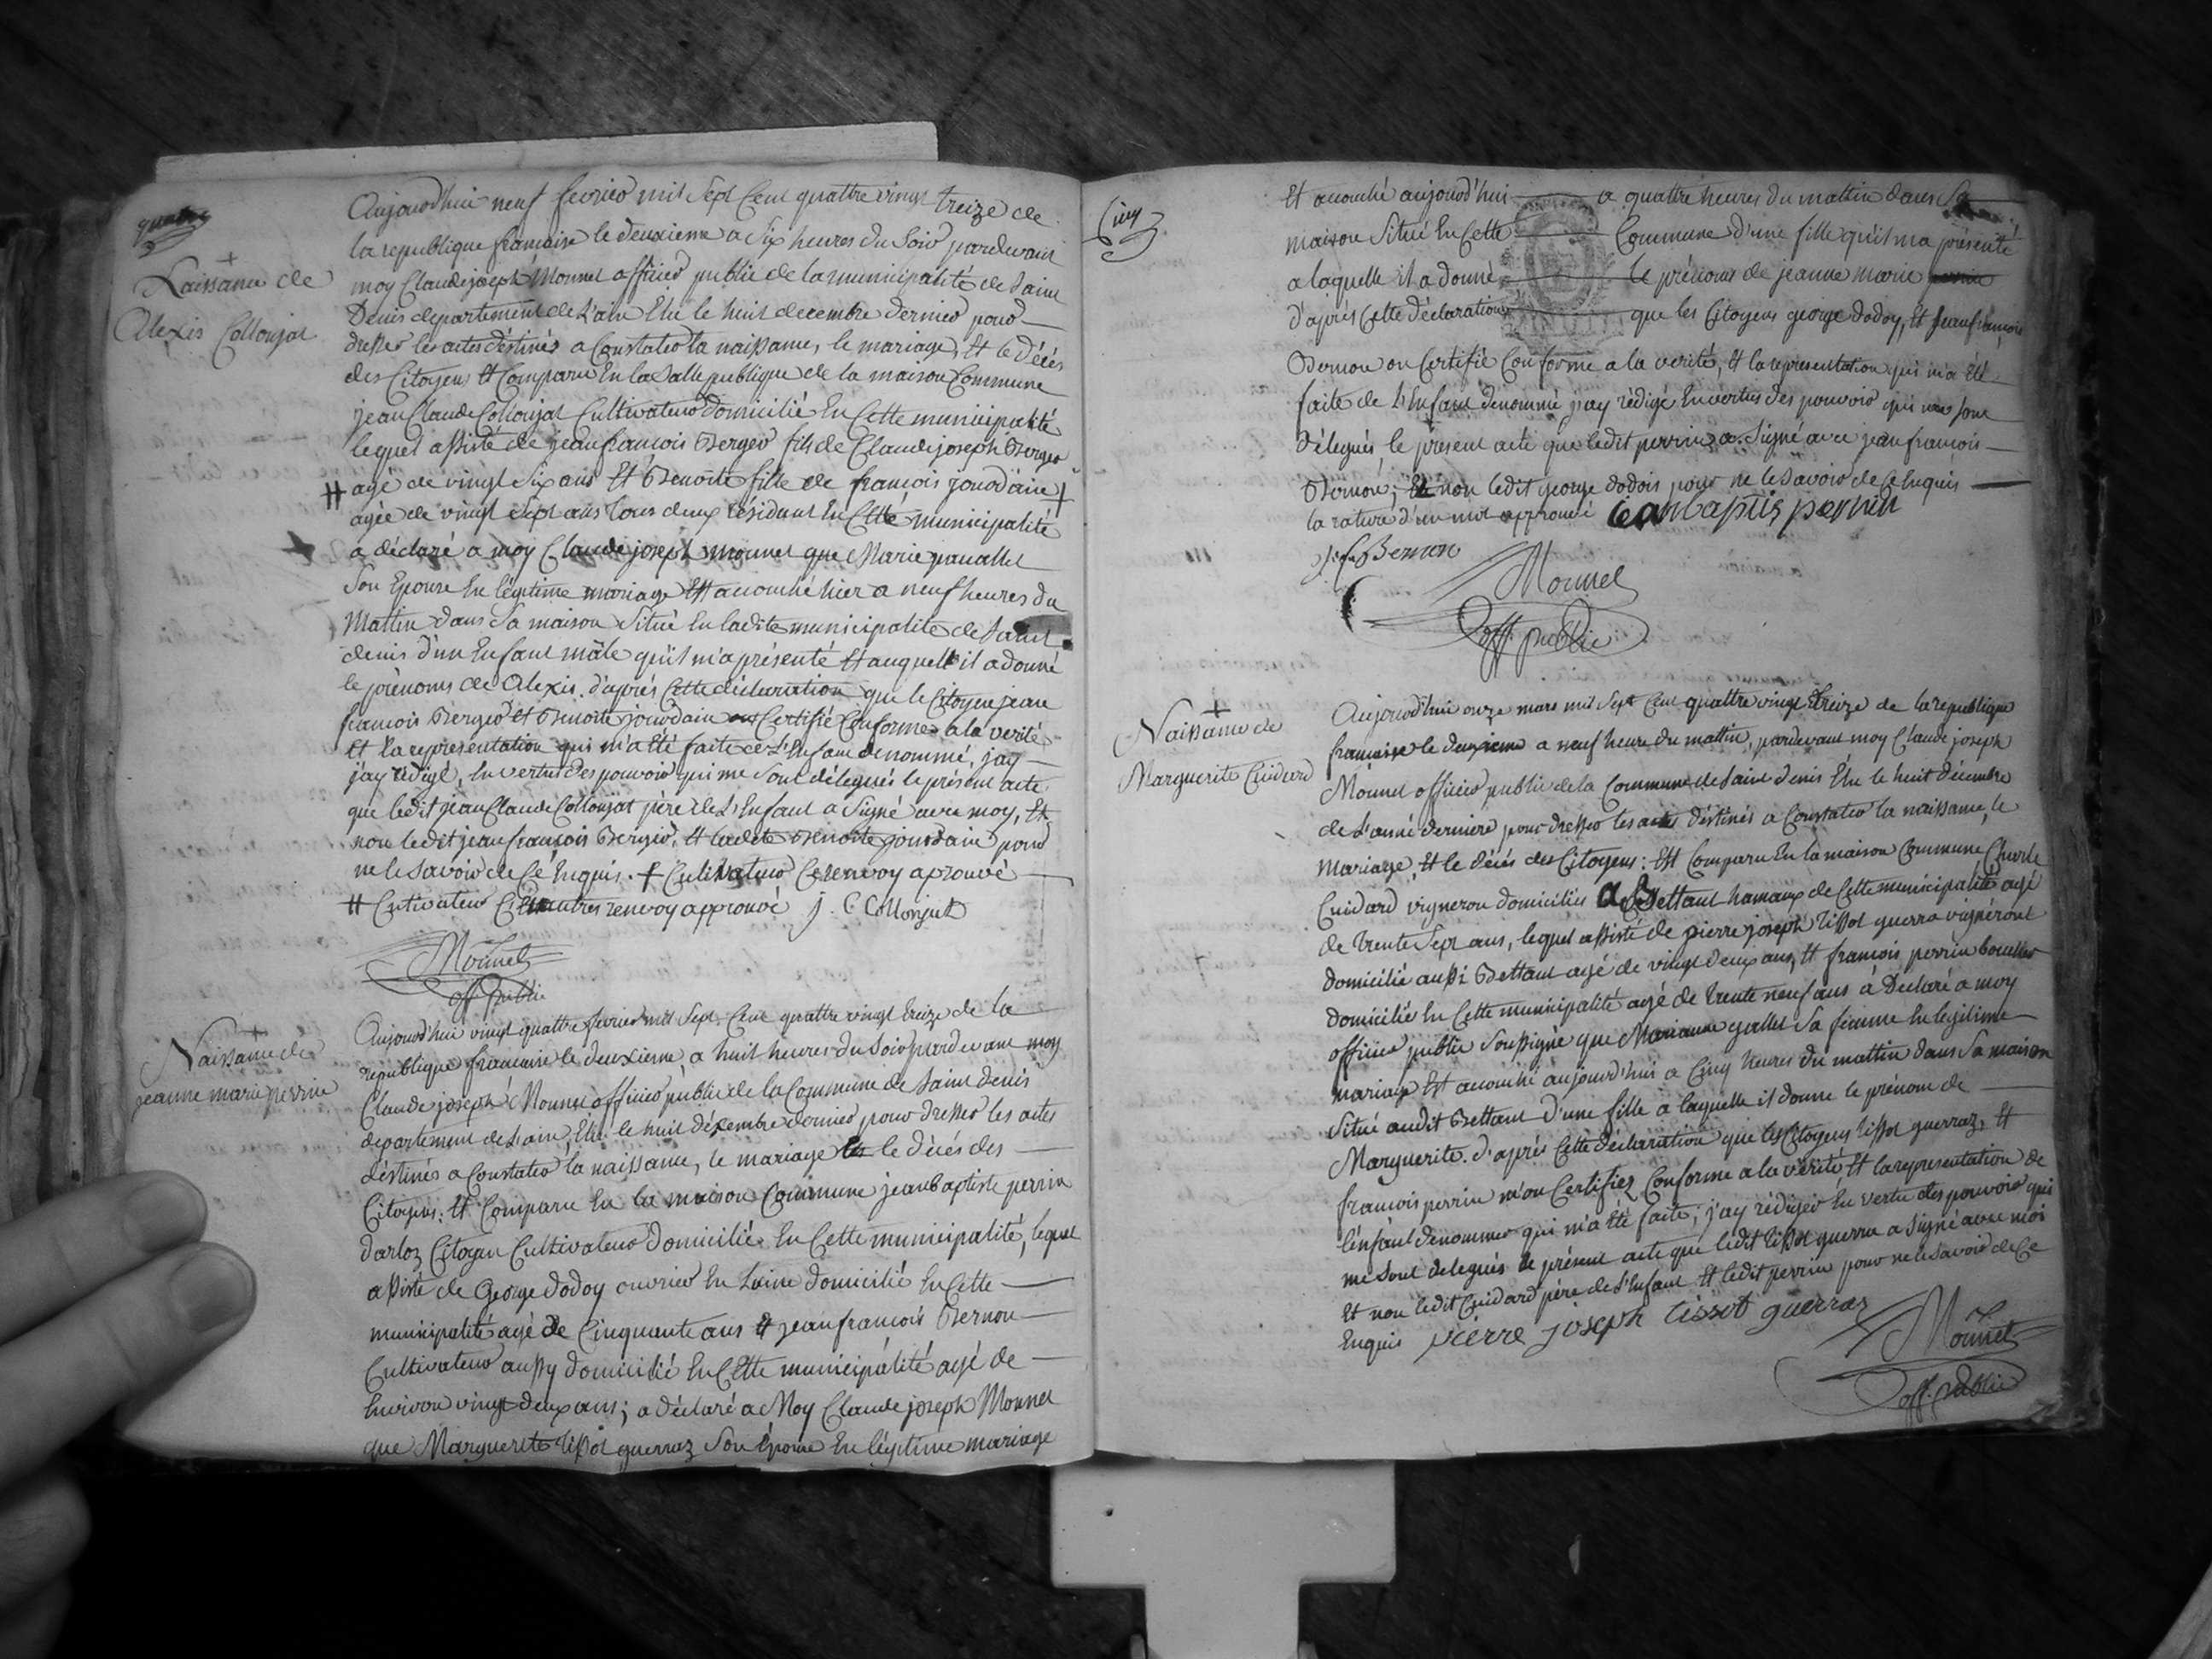 quatre
Naissance de
Alexis Collonjat
Aujourd'hui neuf fevrier mil sept Cent quattre vingt treize de
la republique francaise le deuxieme a Six heures du Soir pardevant
moy Claude joseph Monnet officier public de la municipalité de Saint
Denis departement de L'ain Elu le huit decembre dernier pour
dresser les actes déstinés a Constater la naissance, le mariage, Et le décés
des Citoyens Et Comparu En la Salle publique de la maison Commune
jean Claude Collonjat Cultivateur domicilié En Cette municipalité
lequel assisté de jean francois Berger fils de Claude joseph Berger
# agé de vingt Six ans Et Benoite fille de francois jourdain +
agée de vingt Sept ans tous deux résidant En Cette municipalité
a déclaré a moy Claude joseph Monnet que Marie
Son Epouse En légitime mariage Est accouché hier a neuf heures du
Mattin dans Sa maison Situé En ladite municipalité de Saint
denis d'un Enfant mâle qu'il m'a présenté Et auquelt il a donné
le prénoms de Alexis. d'aprés Cette déclaration que le Citoyen jean
francois Berger Et Benoite jourdain ont Certifié Conforme a la verité
Et la representation qui m'a Eté faite de L'Enfant dénommé, jay
j'ay rédigé, En vertus des pouvoir qui me Sont délegués le présent acte
que ledit jean Claude Collonjat père de L'Enfant a Signé avec moy, Et
non ledit jean francois Berger, Et ladite Benoite jourdain pour
ne le Savoir de Cé Enquis. + Cultivateur Ce renvoy aprouvé
# Cultivateur autres renvoy approuvé J. C Collonjat
Monnet
off. public
Naissance de
jeanne marie perrin
Aujourd'hui vingt quattre fevrier mil Sept Cent quattre vingt treize de la
republique francaise le deuxieme, a huit heures du Soir pardevant moy
Claude joseph Monnet officier public de la Commune de Saint denis
departement de L'ain, Elu le huit décembre dernier pour dresser les actes
déstinés a Constater la naissance, le mariage le décés des
Citoyens; Et Comparu En la maison Commune jean baptiste perrin
darloz Citoyen Cultivateur domicilié En Cette municipalité, lequel
assisté de George Dodoy ouvrier En Laine domicilié En Cette
municipalité agé de Cinquante ans Et jean francois Bernon
Cultivateur aussy domicilié En Cette municipalité agé de
Environ vingt deux ans; a déclaré a Moy Claude joseph Monnet
que Marguerite tissot guerraz Son Epouse En légitime mariage
Cinq
Et accouché aujourd'hui a quattre heures du mattin dans Sa
maison Situé En Cette Commune d'une fille qu'il m'a présenté
a laquelle il a donné le prénoms de jeanne marie
d'aprés Cette déclaration que les Citoyens george dodoy, Et jean francois
Bernon on Certifié Conforme a la verité, Et la representation qui m'a Eté
faite de L'Enfant dénommé j'ay rédigé En vertus des pouvoir qui me sont
délegués le present acte que ledit perrin a Signé avec jean francois
Bernon, Et non ledit george dodois pour ne le Savoir de Ce Enquis
la rature d'un mot approuvé jean baptis perrin
j. f. Bernon
Monnet
off. public
Naissance de
Marguerite Cuidard
Aujourd'hui onze mars mil Sept Cent quattre vingt treize de la republique
francaise le deuxieme a neuf heure du mattin, pardevant moy Claude joseph
Monnet officier public de la Commune de Saint denis Elu le huit décembre
de L'anné derniere pour dresser les actes déstinés a Constater la naissance, le
mariage, Et le décés des Citoyens: Est Comparu En la maison Commune Charle
Cuidard vigneron domiciliés a Bettant hamaux de Cette municipalité agé
de trente Sept ans, lequel assisté de pierre joseph tissot guerra vignéront
domicilié aussi Bettant agé de vingt deux ans, Et francois perrin boucher
domicilié En Cette municipalité agé de trente neuf ans a Déclaré a moy
officier public Soussigné que Marianne gallet Sa femme En legitime
mariage Est accouché aujourd'hui a Cinq heures du mattin dans Sa maison
Situé audit Bettant d'une fille a laquelle il donne le prénom de
Marguerite. d'aprés Cette déclaration que les Citoyens tissot guerraz, Et
francois perrin m'on Certifiez Conforme a la vérité Et la representation de
l'enfant dénommer qui m'a Eté faite; j'ay rédiger En vertu des pouvoir qui
me Sont delegués le présent acte que ledit tissot guerra a Signé avec moi
Et non ledit Cuidard pére de L'Enfant Et ledit perrin pour ne le Savoir de Ce
Enquis pierre joseph tissot guerraz
Monnet
off. public